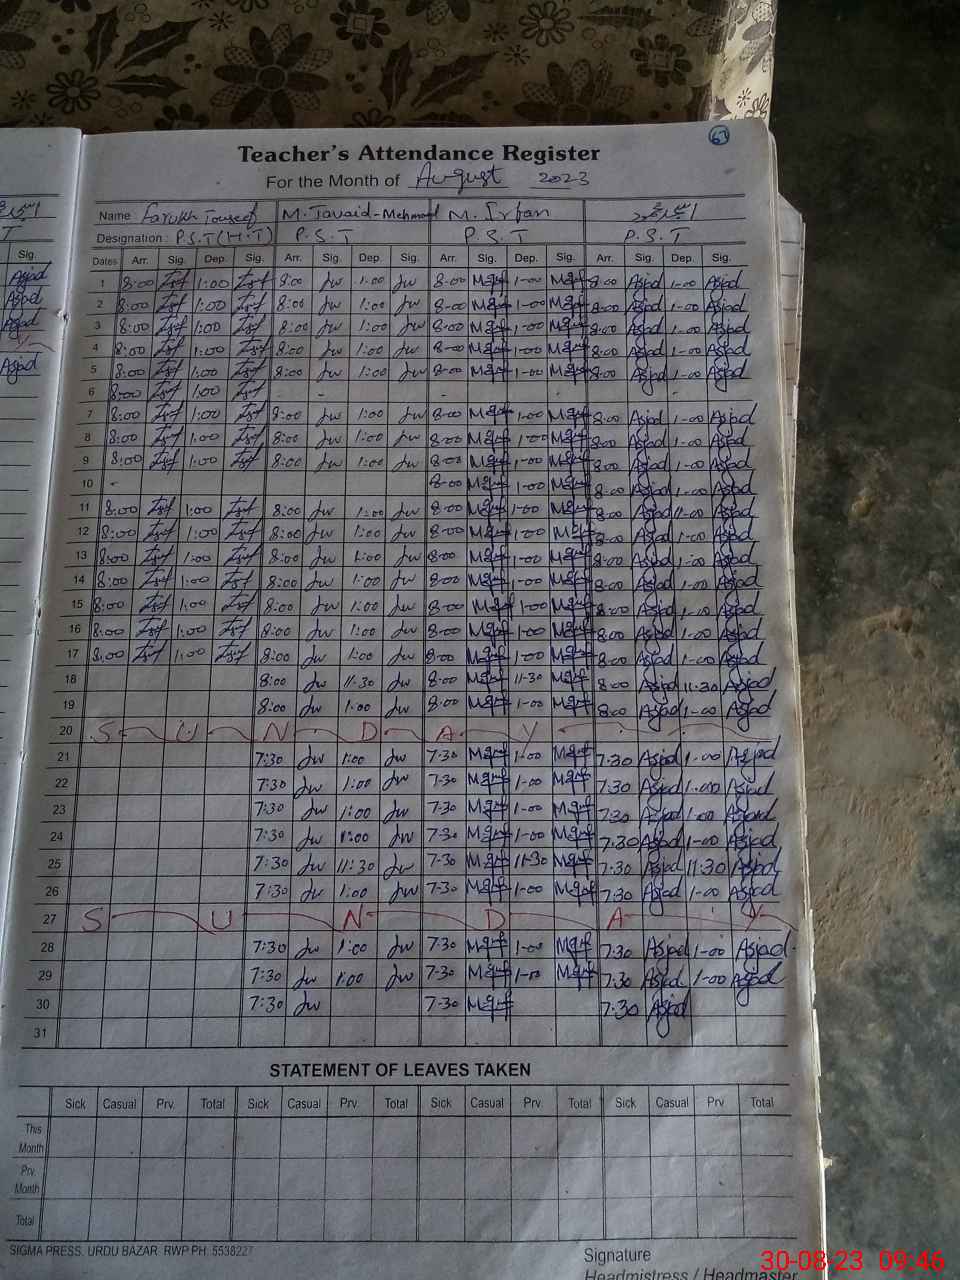 67
Teacher's Attendance Register
For the Month of August 2023
Name : Farukh Touseef M. Javaid-Mehmood M. Irfan
Designation : P.S.T (H.T) P.S.T P.S.T P.S.T
Sig. Dates Arr. Sig. Dep. Sig. Arr. Sig. Dep. Sig. Arr. Sig. Dep. Sig. Arr. Sig. Dep. Sig.
Asjad 1 8:00 1:00 8:00 Jw 1:00 Jw 8-00 1-00 8-00 Asjad 1-00 Asjad
Asjad 2 8:00 1:00 8:00 Jw 1:00 Jw 8-00 1-00 8-00 Asjad 1-00 Asjad
Asjad 3 8:00 1:00 8:00 Jw 1:00 Jw 8-00 1-00 8-00 Asjad 1-00 Asjad
4 8:00 1:00 8:00 Jw 1:00 Jw 8-00 1-00 8-00 Asjad 1-00 Asjad
Asjad 5 8:00 1:00 8:00 Jw 1:00 Jw 8-00 1-00 8-00 Asjad 1-00 Asjad
6 8:00 1:00 - - - -
7 8:00 1:00 8:00 Jw 1:00 Jw 8-00 1-00 8-00 Asjad 1-00 Asjad
8 8:00 1:00 8:00 Jw 1:00 Jw 8-00 1-00 8-00 Asjad 1-00 Asjad
9 8:00 1:00 8:00 Jw 1:00 Jw 8-00 1-00 8-00 Asjad 1-00 Asjad
10 - 8-00 1-00 8-00 Asjad 1-00 Asjad
11 8:00 1:00 8:00 Jw 1:00 Jw 8-00 1-00 8-00 Asjad 1-00 Asjad
12 8:00 1:00 8:00 Jw 1:00 Jw 8-00 1-00 8-00 Asjad 1-00 Asjad
13 8:00 1:00 8:00 Jw 1:00 Jw 8-00 1-00 8-00 Asjad 1-00 Asjad
14 8:00 1:00 8:00 Jw 1:00 Jw 8-00 1-00 8-00 Asjad 1-00 Asjad
15 8:00 1:00 8:00 Jw 1:00 Jw 8-00 1-00 8-00 Asjad 1-00 Asjad
16 8:00 1:00 8:00 Jw 1:00 Jw 8-00 1-00 8-00 Asjad 1-00 Asjad
17 8:00 1:00 8:00 Jw 1:00 Jw 8-00 1-00 8-00 Asjad 1-00 Asjad
18 8:00 Jw 11:30 Jw 8-00 11-30 8-00 Asjad 11-30 Asjad
19 8:00 Jw 1:00 Jw 8-00 1-00 8-00 Asjad 1-00 Asjad
20 S U N D A Y
21 7:30 Jw 1:00 Jw 7-30 1-00 7-30 Asjad 1-00 Asjad
22 7:30 Jw 1:00 Jw 7-30 1-00 7-30 Asjad 1-00 Asjad
23 7:30 Jw 1:00 Jw 7-30 1-00 7-30 Asjad 1-00 Asjad
24 7:30 Jw 1:00 Jw 7-30 1-00 7-30 Asjad 1-00 Asjad
25 7:30 Jw 11:30 Jw 7-30 11-30 7-30 Asjad 11-30 Asjad
26 7:30 Jw 1:00 Jw 7-30 1-00 7-30 Asjad 1-00 Asjad
27 S U N D A Y
28 7:30 Jw 1:00 Jw 7-30 1-00 7-30 Asjad 1-00 Asjad
29 7:30 Jw 1:00 Jw 7-30 1-00 7-30 Asjad 1-00 Asjad
30 7:30 Jw 7-30 7-30 Asjad
31
STATEMENT OF LEAVES TAKEN
Sick Casual Prv. Total Sick Casual Prv. Total Sick Casual Prv. Total Sick Casual Prv Total
This
Month
Prv.
Month
Total
SIGMA PRESS. URDU BAZAR RWP PH: 5538227
Signature
Headmistress / Headmaster
30-08-23 09:46